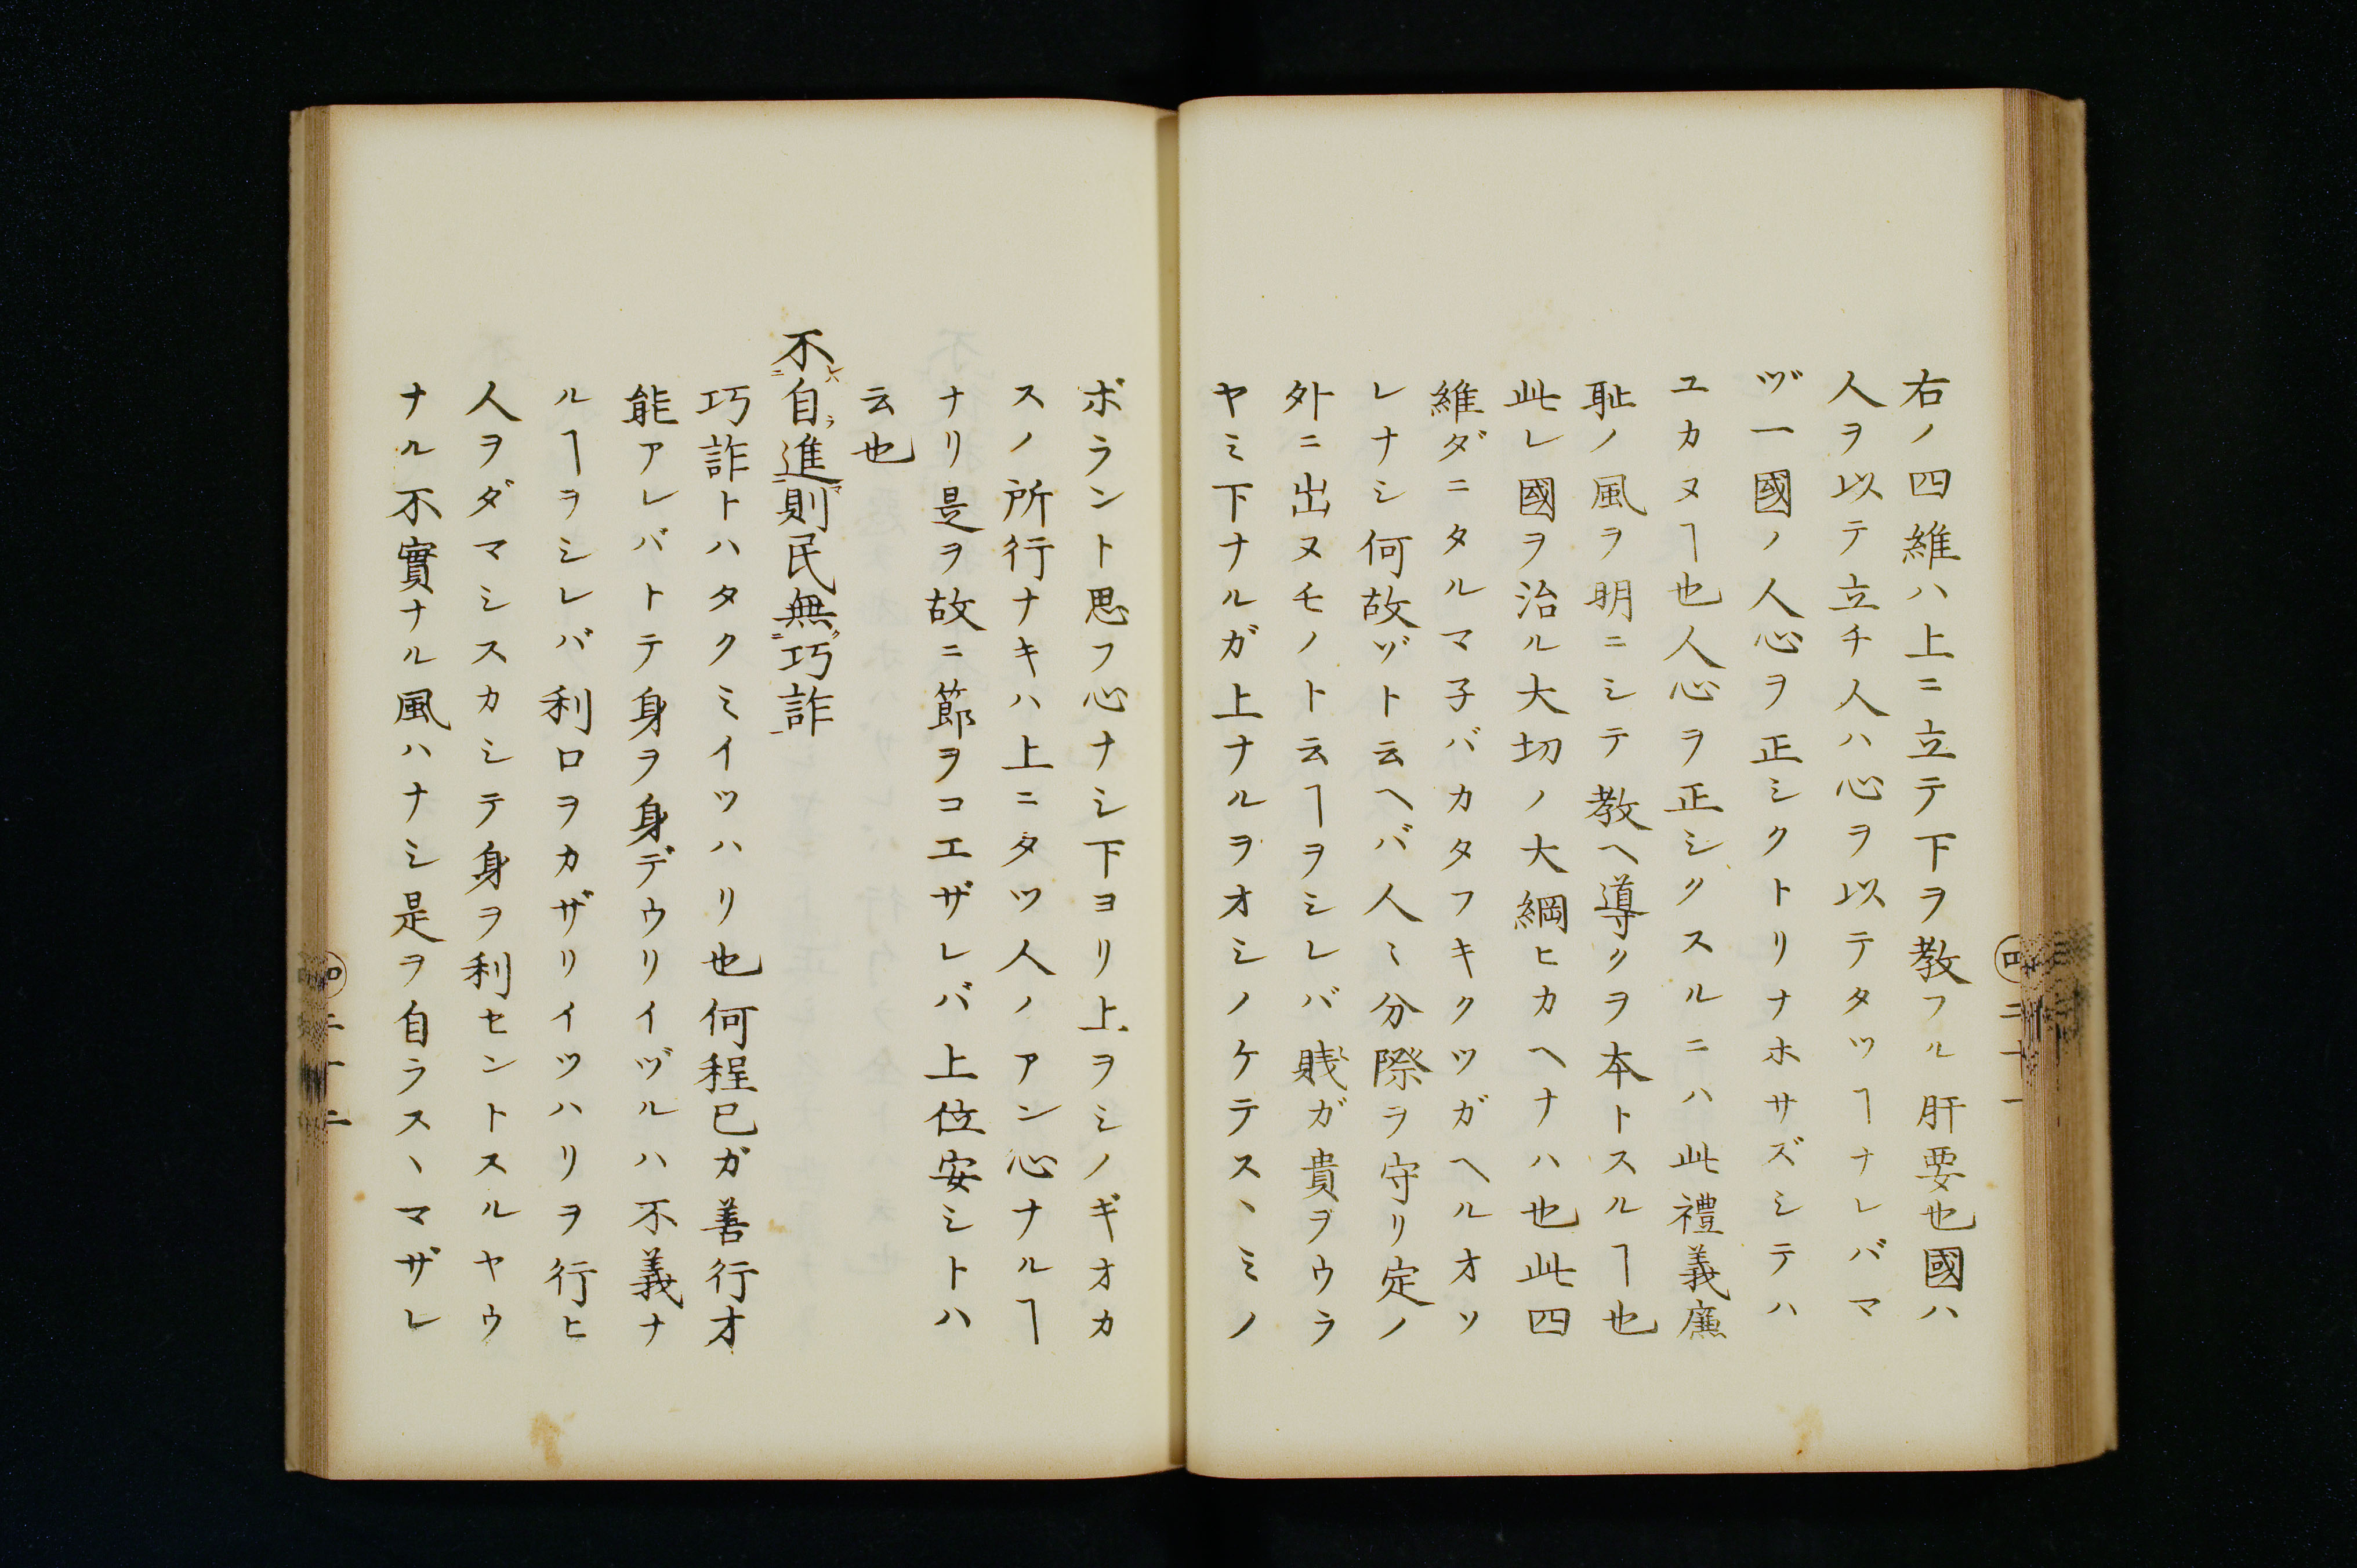 右ノ四維ハ上ニ立テ下ヲ教フル肝要也國ハ
人ヲ以テ立チ人ハ心ヲ以テタツヿナレバマ
ヅ一國ノ人心ヲ正シクトリナホサズシテハ
ユカヌヿ也人心ヲ正シクスルニハ此禮義廉
恥ノ風ヲ明ニシテ教ヘ導クヲ本トスルヿ也
此レ國ヲ治ル大切ノ大綱ヒカヘナハ也此四
維ダニタルマ子バカタフキクツガヘルオソ
レナシ何故ゾト云ヘバ人〻分際ヲ守リ定ノ
外ニ出ヌモノト云ヿヲシレバ賎ガ貴ヲウラ
ヤミ下ナルガ上ナルヲオシノケテスヽミノ
ボラント思フ心ナシ下ヨリ上ヲシノギオカ
スノ所行ナキハ上ニタツ人ノアン心ナルヿ
ナリ是ヲ故ニ節ヲコエザレバ上位安シトハ
云也
不自進則民無巧詐
巧詐トハタクミイツハリ也何程已ガ善行才
能アレバトテ身ヲ身デウリイヅルハ不義ナ
ルヿヲシレバ利口ヲカザリイツハリヲ行ヒ
人ヲダマシスカシテ身ヲ利セントスルヤウ
ナル不實ナル風ハナシ是ヲ自ラスヽマザレ